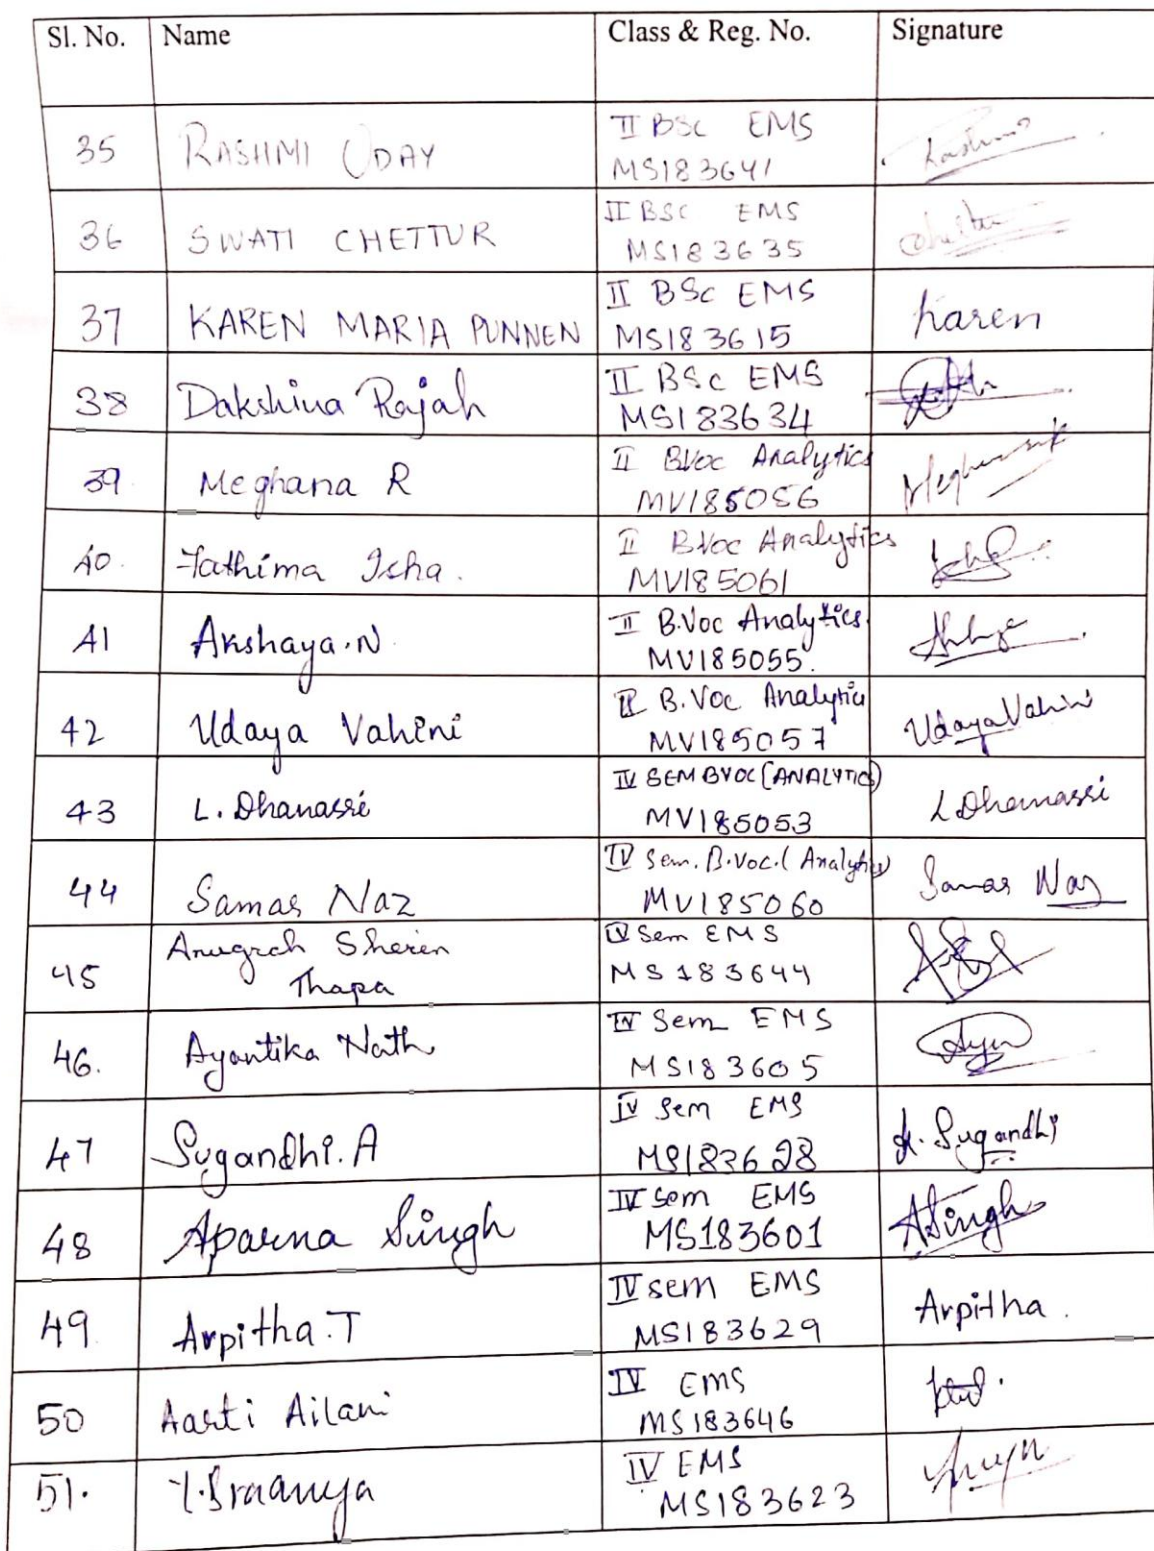 Sl. No. Name Class & Reg. No. Signature
35 RASHMI UDAY II BSc EMS
MS183641
36 SWATI CHETTUR II BSC EMS
MS183635
37 KAREN MARIA PUNNEN II BSc EMS Karen
MS183615
38 Dakshina Rajah II BSc EMS
MS183634
39 Meghana R II BVoc Analytics
MV185056
40. Fathima Isha. II BVoc Analytics
MV185061
41 Akshaya.N II B.Voc Analytics.
MV185055.
42 Udaya Vahini II B.Voc Analytics Udaya Vahini
MV185057
43 L. Dhanassri IV SEM BVOC (ANALYTICS) L Dhanassri
MV185053
44 Samas Naz IV Sem. B.Voc. (Analytics) Samas Naz
MV185060
45 Anugrah Sheren IV Sem EMS
Thapa MS183644
46. Ayantika Nath IV Sem EMS
MS183605
47 Sugandhi.A IV Sem EMS A. Sugandhi
MS183628
48 Aparna Singh IV Sem EMS ASingh
MS183601
49. Arpitha.T IV sem EMS Arpitha.
MS183629
50 Aarti Ailani IV EMS
MS183646
51. IV EMS
MS183623